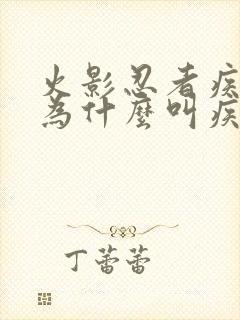 火影忍者疾
為什麼叫疾
丁蕾蕾